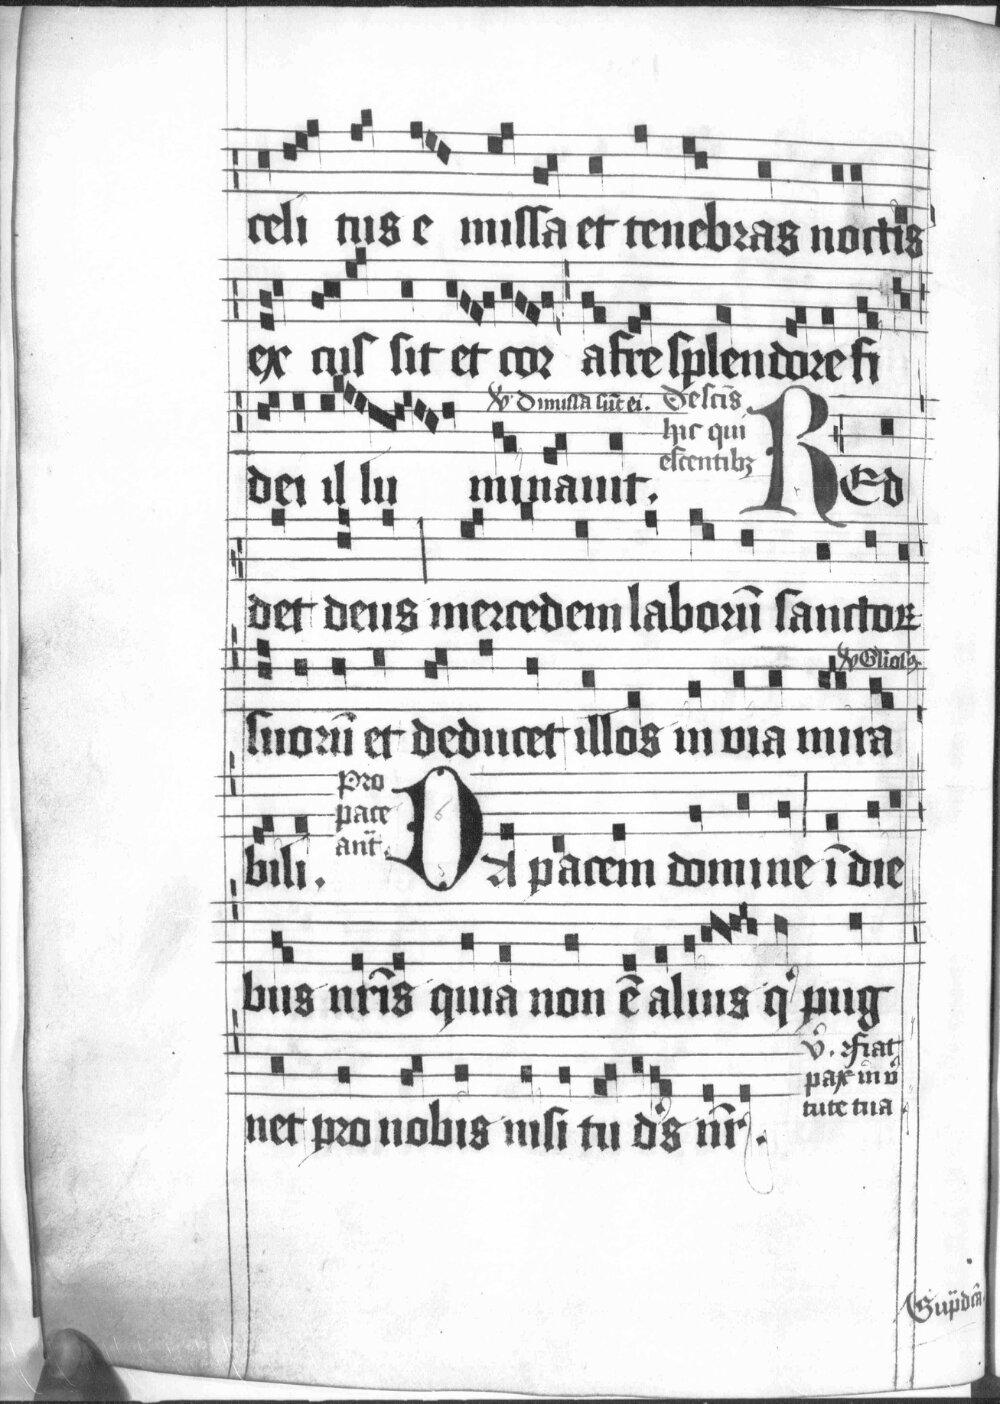 celi tus e missa et tenebras noctis
ex cus sit et cor a fre splendore fi
℣ Dimissa sūt ei. De sctīs
hic qui
escentibꝫ
dei il lu minauit. REd
det deus mercedem laborū sanctoꝝ
℣ Gliosꝰ
suorū et deducet illos in via mira
Pro
pace
ant.
bili. DA pacem domine ī die
bus nrīs quia non ē alius qͥ pug
℣. Fiat
pax in v̉
tute tua
net pro nobis nisi tu ds̄ nr̄.